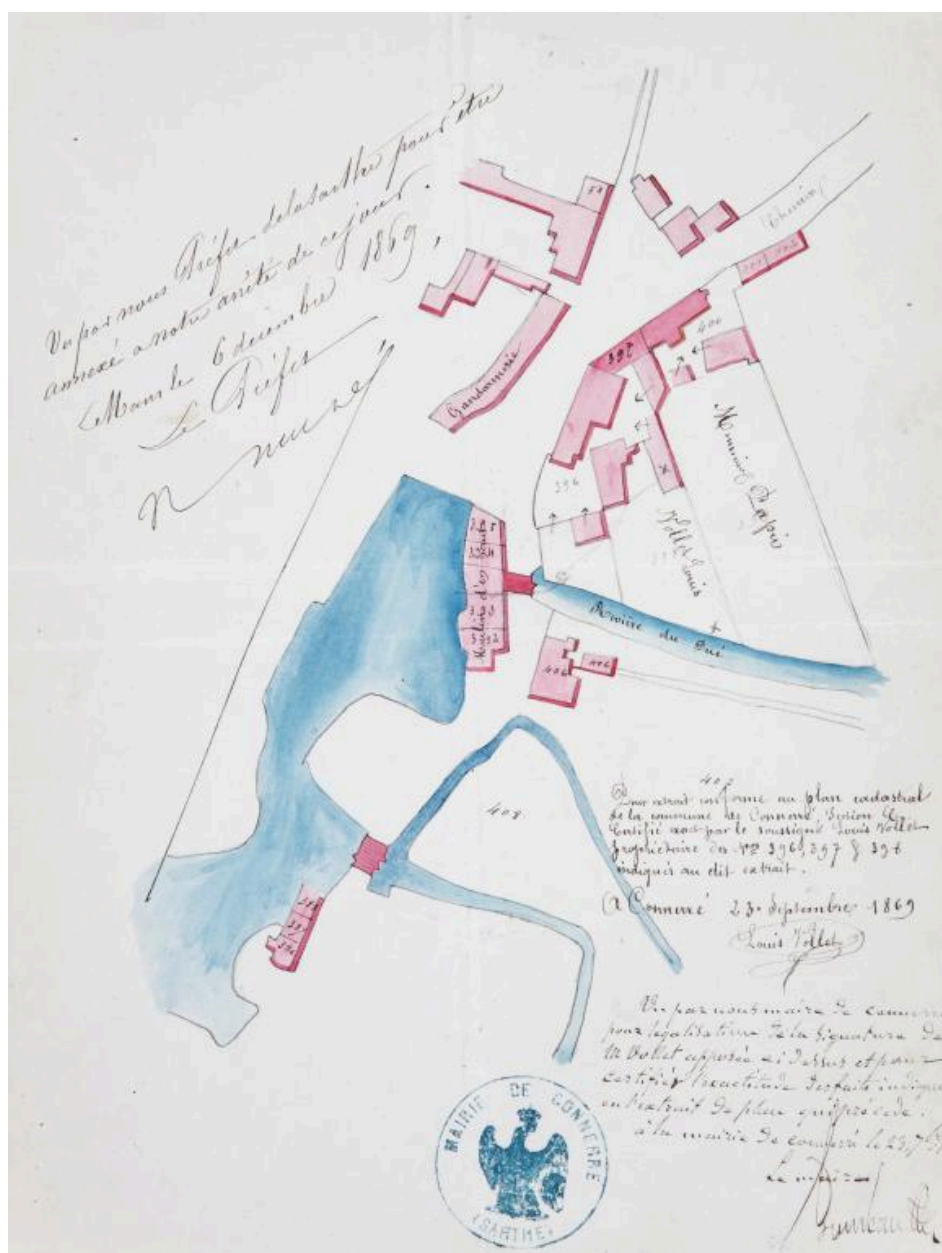 Vu par nous Préfet de la Sarthe pour être
annexé à notre arrêté de ce jour.
Mans le 6 décembre 1869,
Le Préfet
54
Chemin
Gendarmerie
397
400
396
Monsieur Papin
Vollet Louis
395
394
Moulins d'en
392
Rivière du Dué
406
406
407
408
Pour extrait conforme au plan cadastral
de la commune de Connerré, Section
Certifié exact par le soussigné Louis Vollet
propriétaire des Nos 396, 397 & 398
indiqués au dit extrait.
A Connerré 23 Septembre 1869
Louis Vollet
Vu par nous maire de Connerré
pour légalisation de la signature de
M Vollet apposée ci dessus et pour
certifier l'exactitude des faits indiqués
en l'extrait de plan qui précède.
à la mairie de Connerré le 23
Le maire
MAIRIE DE CONNERRE
(SARTHE)